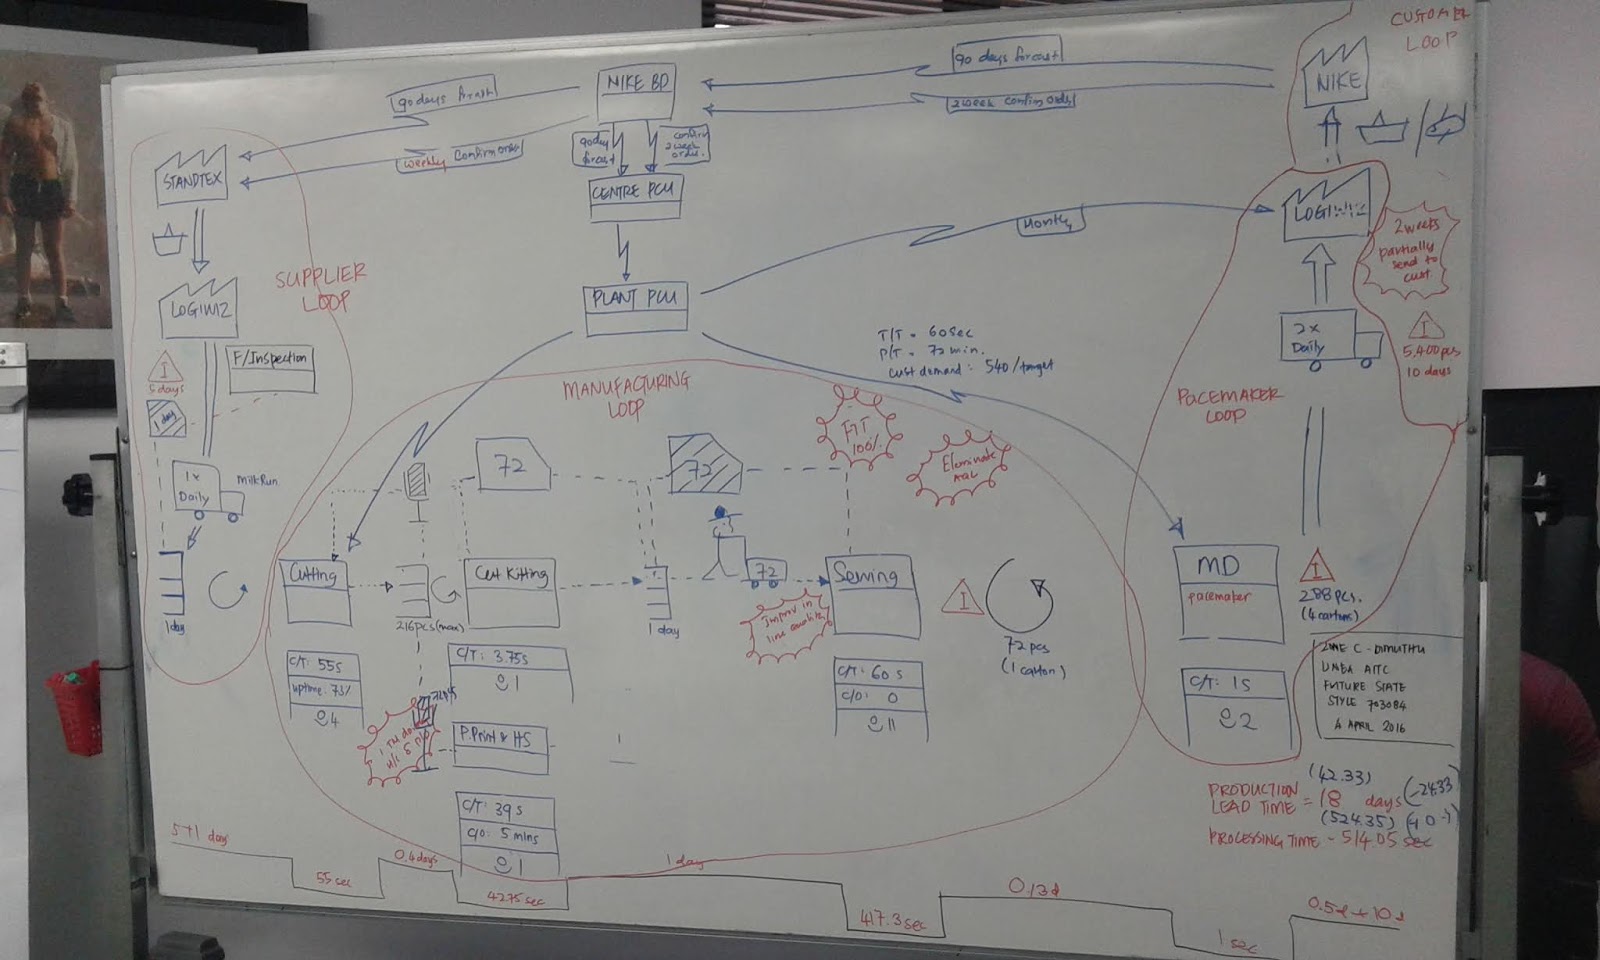 CUSTOMER
LOOP
NIKE
90 days forcast
2 week confirm order
NIKE BD
90 days forcast
weekly confirm order
90day
forcast
confirm
2 week
order.
STANDTEX
CENTRE PCU
PLANT PCU
Monthly
LOGIWIZ
2 weeks
partially
send to
cust.
I
5,400pcs
10 days
2x
Daily
SUPPLIER
LOOP
LOGIWIZ
F/Inspection
I
5 days
1 day
1x
Daily
MilkRun
1 day
T/T = 60sec
P/T = 72 min.
Cust demand : 540/target
MANUFACTURING
LOOP
PACEMAKER
LOOP
FTT
100%
Eleminate
AQL
72
72
Cutting
216pcs(max)
Cut Kitting
1 day
72
Sewing
Improv in
line
I
72 pcs
(1 carton)
MD
pacemaker
I
288 pcs.
(4 cartons)
C/T: 55s
uptime: 73%
4
C/T: 3.75s
1
P.Print & HS
C/T: 39s
C/O: 5 mins
1
C/T: 60s
C/O: 0
11
C/T: 1s
2
ZONE C - DIMUTHU
UNEA AITC
FUTURE STATE
STYLE 703084
4 APRIL 2016
(42.33)
PRODUCTION
LEAD TIME = 18 days (-24.33)
(524.35)
PROCESSING TIME - 514.05 sec
5+1 days
55sec
0.4days
42.75sec
1 day
417.3sec
0.13d
1 sec
0.5d+10d